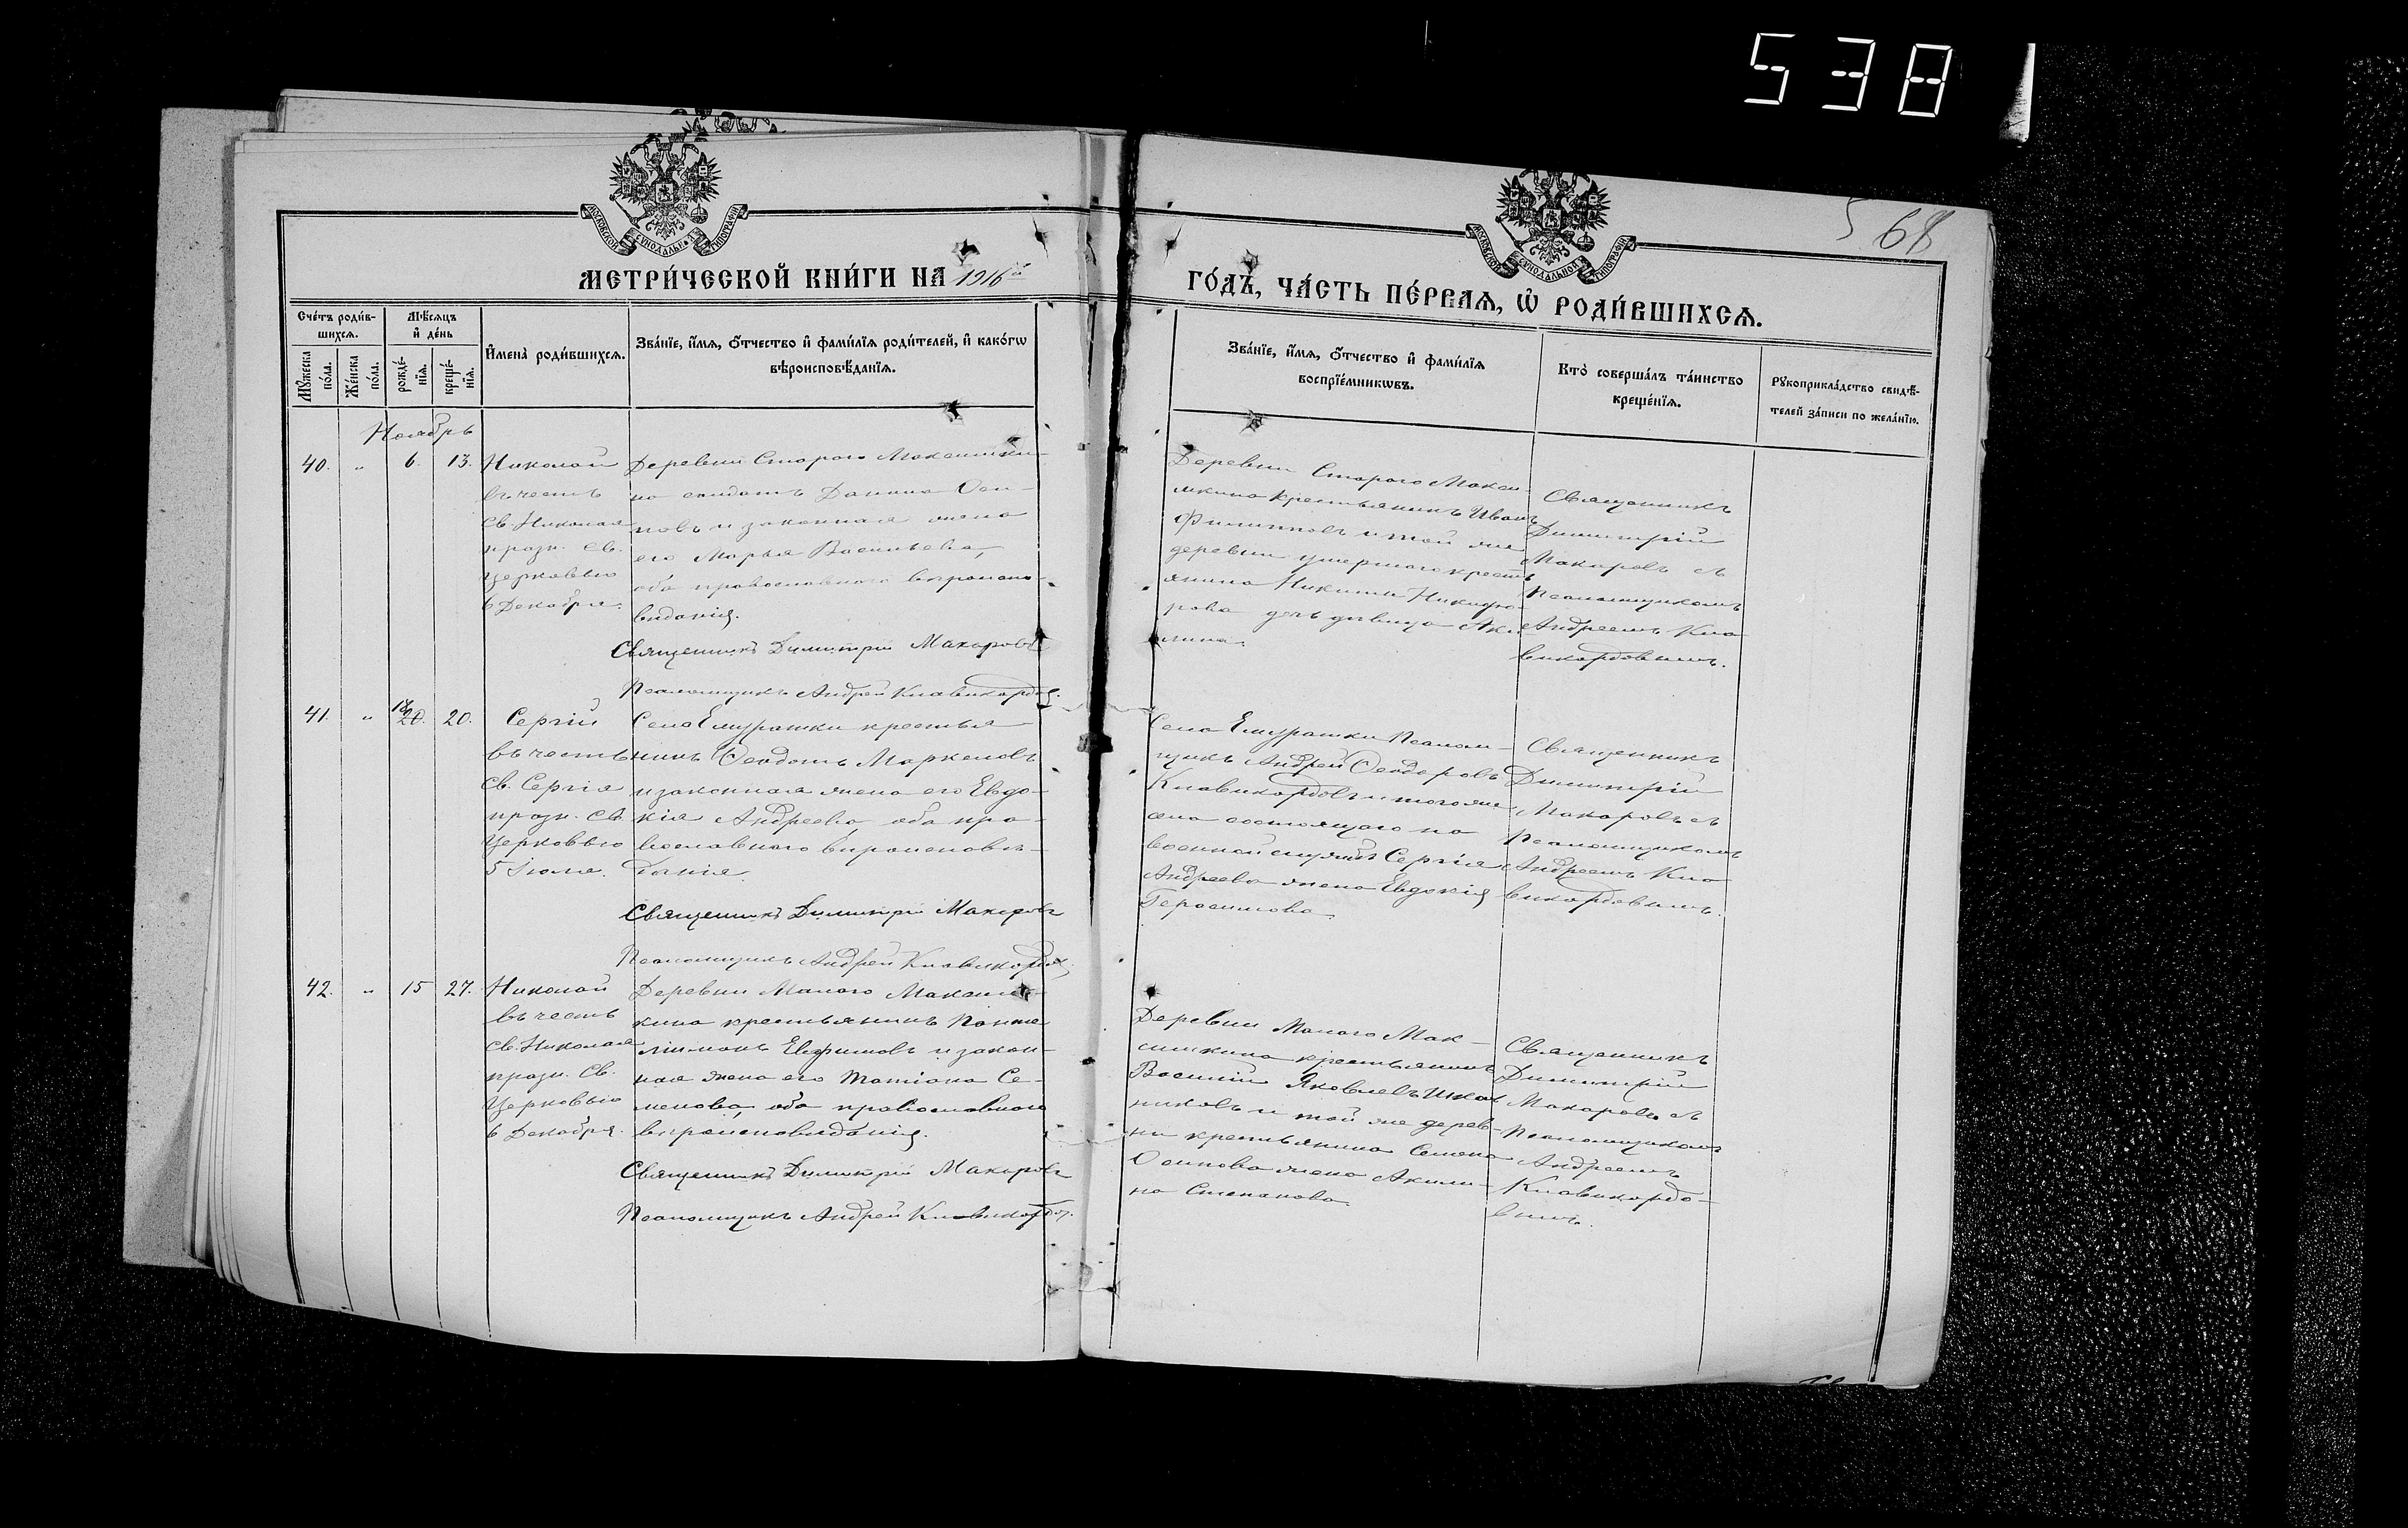 538
568
МОСКОВСКОЙ СѴНОДАЛЬНОЙ ТИПОГРАФІИ
МОСКОВСКОЙ СѴНОДАЛЬНОЙ ТИПОГРАФІИ
МЕТРИ́ЧЕСКОЙ КНИ́ГИ НА 1916й
ГО́ДЪ, ЧА́СТЬ ПЕ́РВАѦ, Ѡ҆ РОДИ́ВШИХСѦ.
Сче́тъ роди́в-
шихсѧ.
Мѣ́сѧцъ
и҆ де́нь
Мꙋ́жеска
по́ла.
Же́нска
по́ла.
рожде́-
нїѧ.
креще́-
нїѧ.
И҆мена̀ роди́вшихсѧ.
Зва́нїе, и҆́мѧ, ѻ҆́тчество и҆ фами́лїѧ роди́телей, и҆ како́гѡ
вѣроисповѣ́данїѧ.
Зва́нїе, и҆́мѧ, ѻ҆́тчество и҆ фами́лїѧ
воспрїе́мникѡвъ.
Кто̀ соверша́лъ та́инство
креще́нїѧ.
Рꙋкоприкла́дство свидѣ́-
телей за́писи по жела́нїю.
Ноябрь
40. „ 6. 13.
Николай
въ честь
Св. Николая
празн. Св.
Церковью
6 Декабря.
Деревни Стараго Максимки-
на солдатъ Осн-
повъ и законная жена
его Марья Васильева,
оба православнаго вѣроиспо-
вѣданія.
Священникъ Димитрій Макаровъ
Псаломщикъ Андрей Клавикордовъ.
Деревни Стараго Макси-
мкина крестьянинъ Иванъ
Филипповъ и той же
деревни умершаго кресть
янина Никиты Никифо-
рова дочь дѣвица Аки
лина.
Священникъ
Димитрій
Макаровъ съ
Псаломщикомъ
Андреемъ Кла
викордовымъ.
41. „ 18 20. 20.
Сергій
въ честь
Св. Сергія
празн. Св.
Церковью
5 Іюля.
Села Емурашки крестья-
нинъ Ѳеодотъ Маркеловъ
и законная жена его Евдо-
кія Андреева, оба пра-
вославнаго вѣроисповѣ-
данія.
Священникъ Димитрій Макаровъ
Псаломщикъ Андрей Клавикордовъ.
Села Емурашки Псалом-
щикъ Андрей Ѳеодоровъ
Клавикордовъ и того же
села состоящаго на
военной службѣ Сергія
Андреева жена Евдокія
Герасимова.
Священникъ
Димитрій
Макаровъ съ
Псаломщикомъ
Андреемъ Кла
викордовымъ.
42. „ 15 27.
Николай
въ честь
Св. Николая
празн. Св.
Церковью
6 Декабря.
Деревни Малаго Максим-
кина крестьянинъ Панте
лимонъ Евфимовъ и закон-
ная жена его Татіана Се-
менова, оба православнаго
вѣроисповѣданія.
Священникъ Димитрій Макаровъ
Псаломщикъ Андрей Клавикордовъ.
Деревни Малаго Мак-
симкина крестьянинъ
Василій Яковлевъ
и той же дерев-
ни крестьянина Семена
Осипова жена Акили-
на Степанова.
Священникъ
Димитрій
Макаровъ съ
Псаломщикомъ
Андреемъ
Клавикордо-
вымъ.